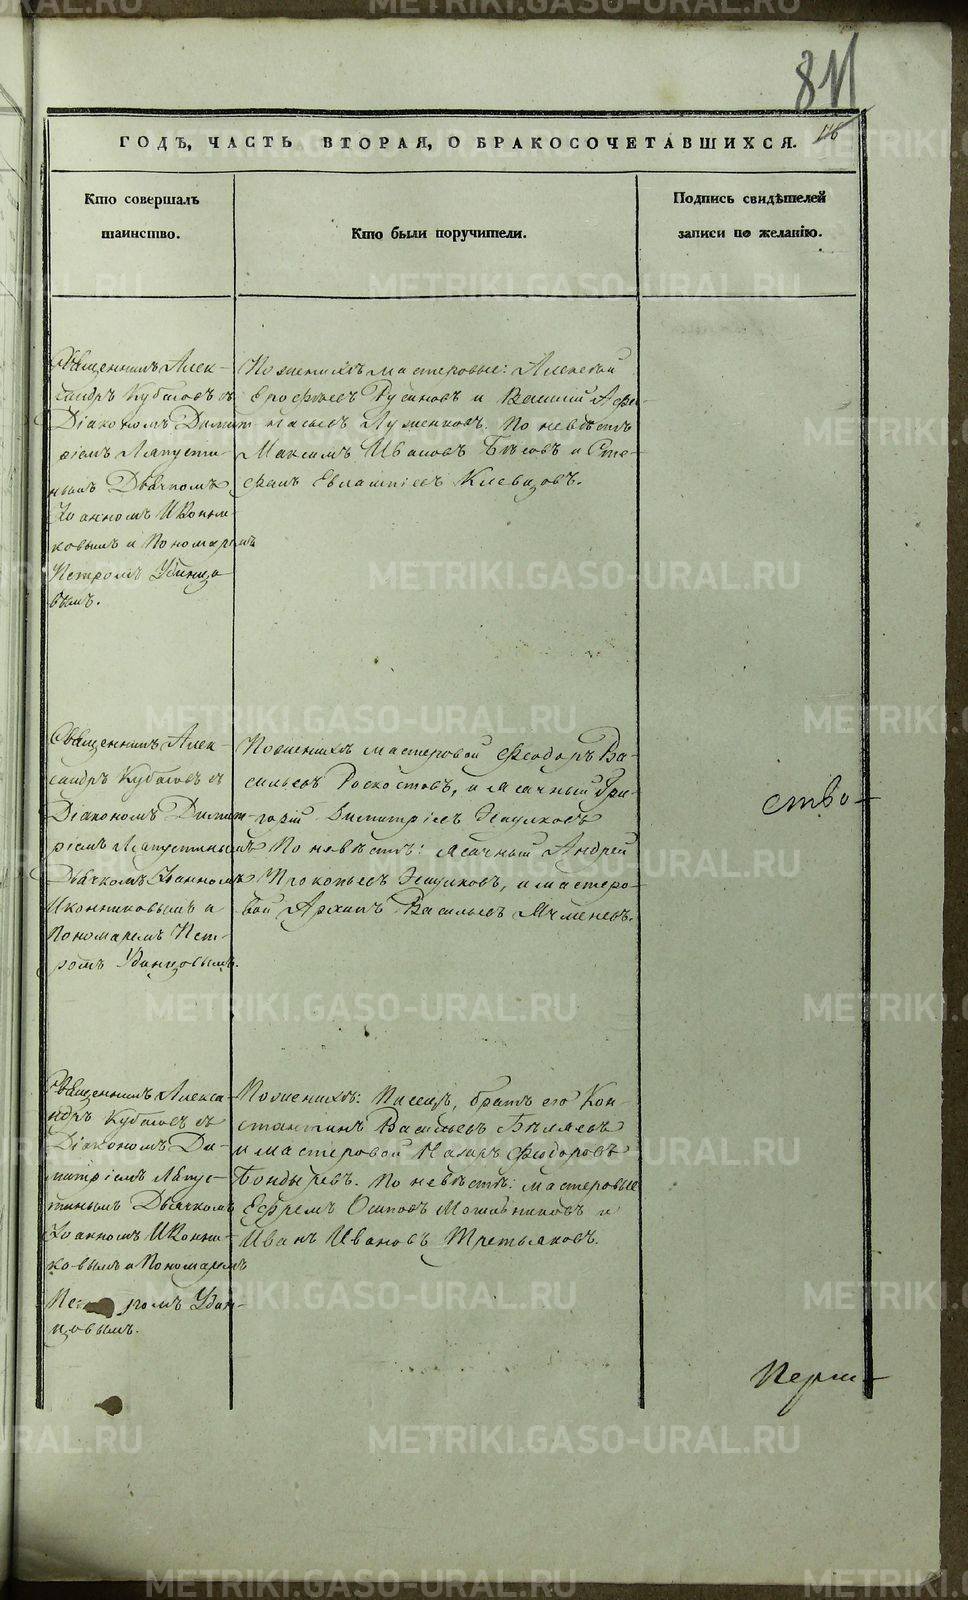 811
176
ГОДЪ, ЧАСТЬ ВТОРАЯ, О БРАКОСОЧЕТАВШИХСЯ.
Кто совершалъ
таинство.
Кто были поручители.
Подпись свидѣтелей
записи по желанію.
Священникъ Алек-
сандръ Кубасовъ съ
Діакономъ Димит-
ріемъ Лапусти-
нымъ Дьячкомъ
Іоанномъ Иконни-
ковымъ и Пономаремъ
Петромъ Удинцо-
вымъ.
По женихѣ мастеровые: Алексѣй
Ерофѣевъ Русиновъ и Василій Афа-
насьевъ Луженковъ. По невѣстѣ
Максимъ Ивановъ Бѣсовъ и Сте-
фанъ Евлампіевъ Клевцовъ.
Священникъ Алек-
сандръ Кубасовъ съ
Діакономъ Димит-
ріемъ Лапустинымъ
Дьячкомъ Іоанномъ
Иконниковымъ и
Пономаремъ Пет-
ромъ Удинцовымъ.
По женихѣ мастеровой Феодоръ Ва-
сильевъ Роскостовъ, и ясачный Гри-
горій Димитріевъ
По невѣстѣ: ясачный Андрей
Прокопьевъ и мастеро-
вой Архипъ Васильевъ Ячменевъ.
ство-
Священникъ Алекса-
ндръ Кубасовъ съ
Діакономъ Ди-
митріемъ Лапус-
тинымъ Дьячкомъ
Іоанномъ Иконни-
ковымъ и Пономаремъ
Петромъ Удин-
цовымъ.
По женихѣ: Писецъ, братъ его Кон-
стантинъ Васильевъ Бѣляевъ
и мастеровой Назаръ Феодоровъ
Бондыревъ. По невѣстѣ: мастеровые
Ефремъ Осиповъ Мотовниковъ и
Иванъ Ивановъ Третьяковъ.
METRIKI.GASO-URAL.RU